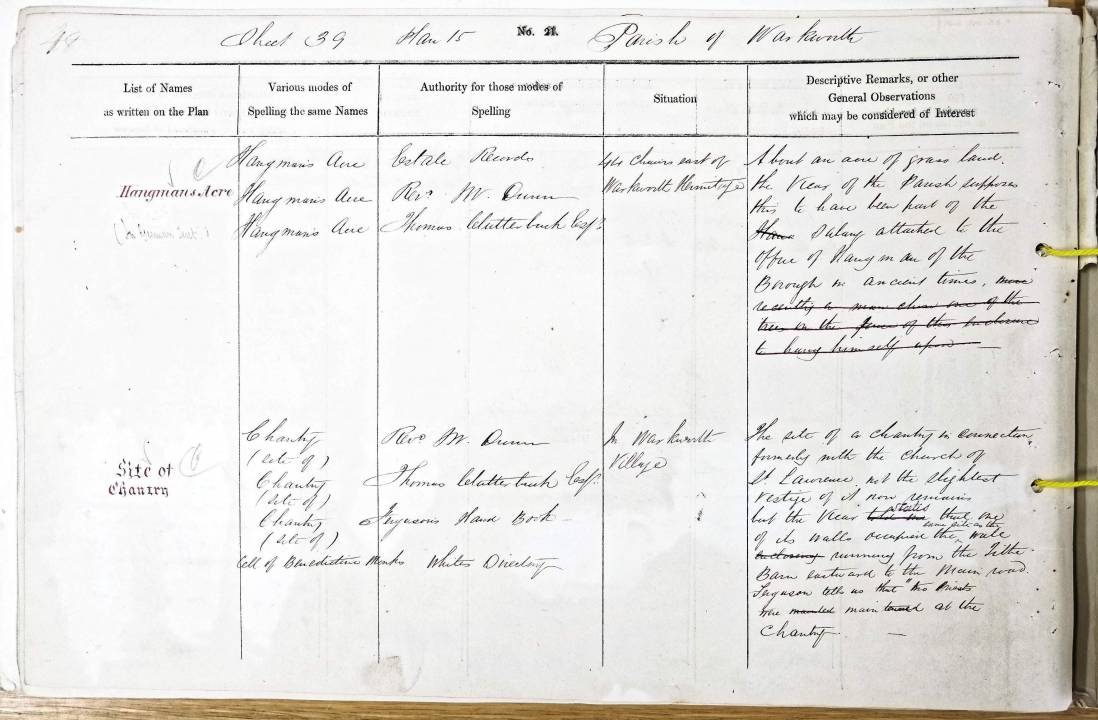 48 Sheet 39 Plan 15 No. 21. Parish of Warkworth
List of Names
as written on the Plan
Various modes of
Spelling the same Names
Authority for those modes of
Spelling
Situation
Descriptive Remarks, or other
General Observations
which may be considered of Interest
Hangmans Acre
Hangman's Acre
Hangman's Acre
Hangman's Acre
Estate Records
Revd M. Dunn
Thomas Clutterbuck Esqr
44 Chains east of
Warkworth Hermitage
About an acre of grass land.
the Vicar of the Parish supposes
this to have been part of the
Salary attached to the
Office of Hangman of the
Borough in ancient times, more
recently a man chose one of the
trees on the fence of this enclosure
to hang himself upon —
Site of
Chantry
Chantry
(site of)
Chantry
(site of)
Chantry
(site of)
Cell of Benedictine Monks
Revd M. Dunn
Thomas Clutterbuck Esqr.
Ferguson's Hand Book —
Whites Directory
In Warkworth
Village
The site of a Chantry in connection
formerly with the Church of
St. Lawrence, not the slightest
vestige of it now remains
but the Vicar told me states that one
of its walls occupied the same site as the wall
enclosing running from the Tithe
Barn eastward to the Main road.
Ferguson tells us that "two Priests
were maintained at the
Chantry. —